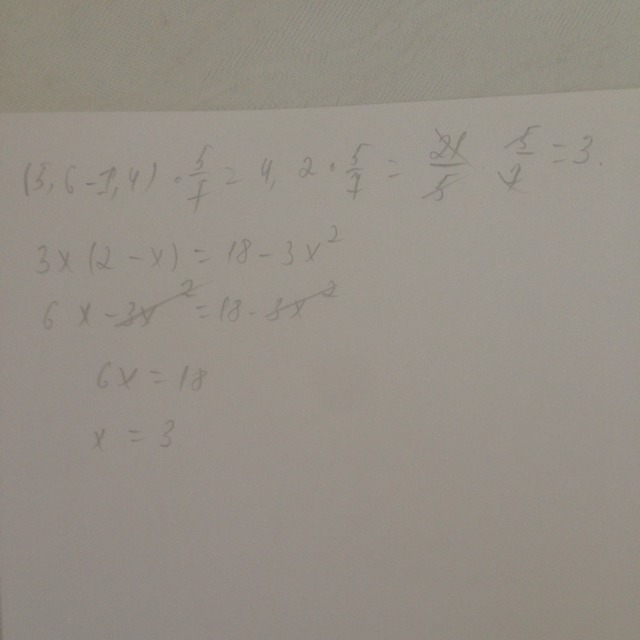 (5,6 - 1,4) · 5/7 = 4,2 · 5/7 = 21/5 · 5/7 = 3
3x (2 - x) = 18 - 3x²
6x - 3x² = 18 - 3x²
6x = 18
x = 3